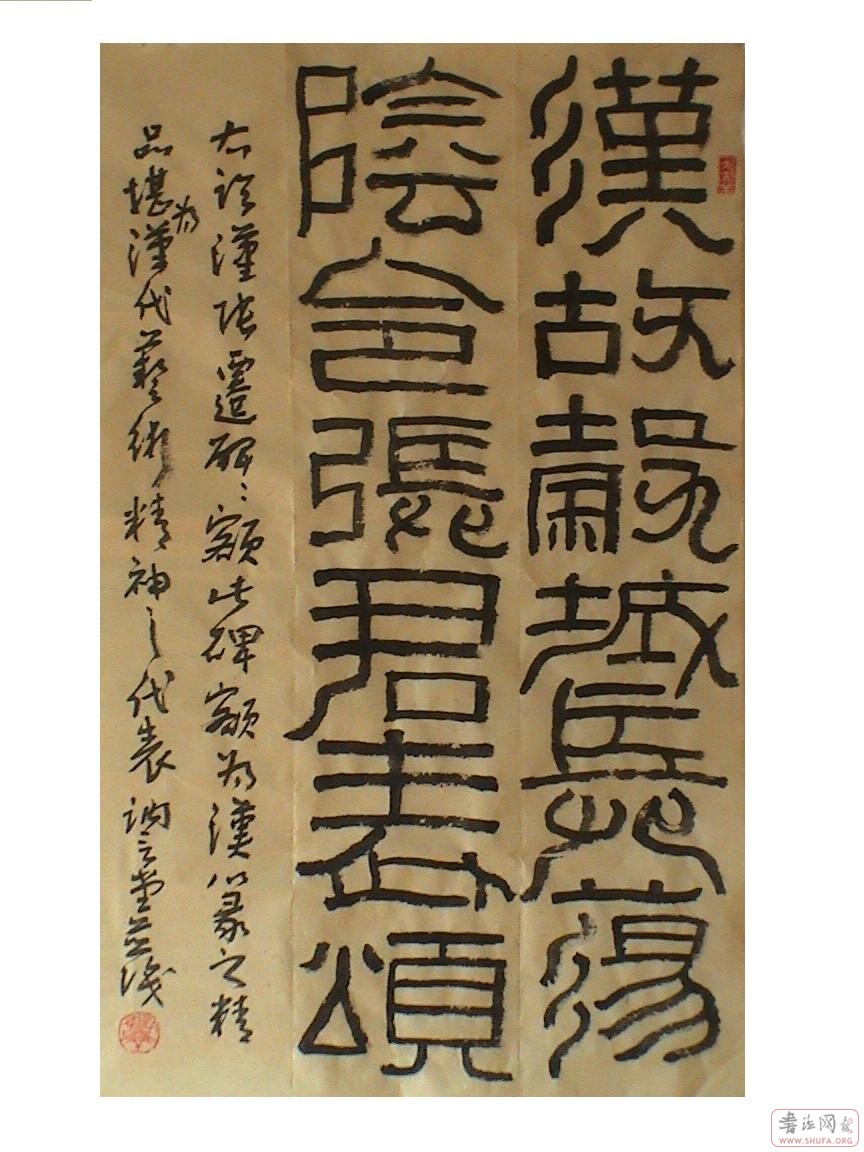 漢故穀城長蕩
陰令張君表頌
右临漢张遷碑〻額此碑額为漢篆之精
品堪为漢代藝術精神之代表
書法网
WWW.SHUFA.ORG